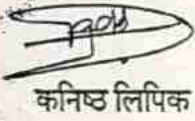 कनिष्ठ लिपिक